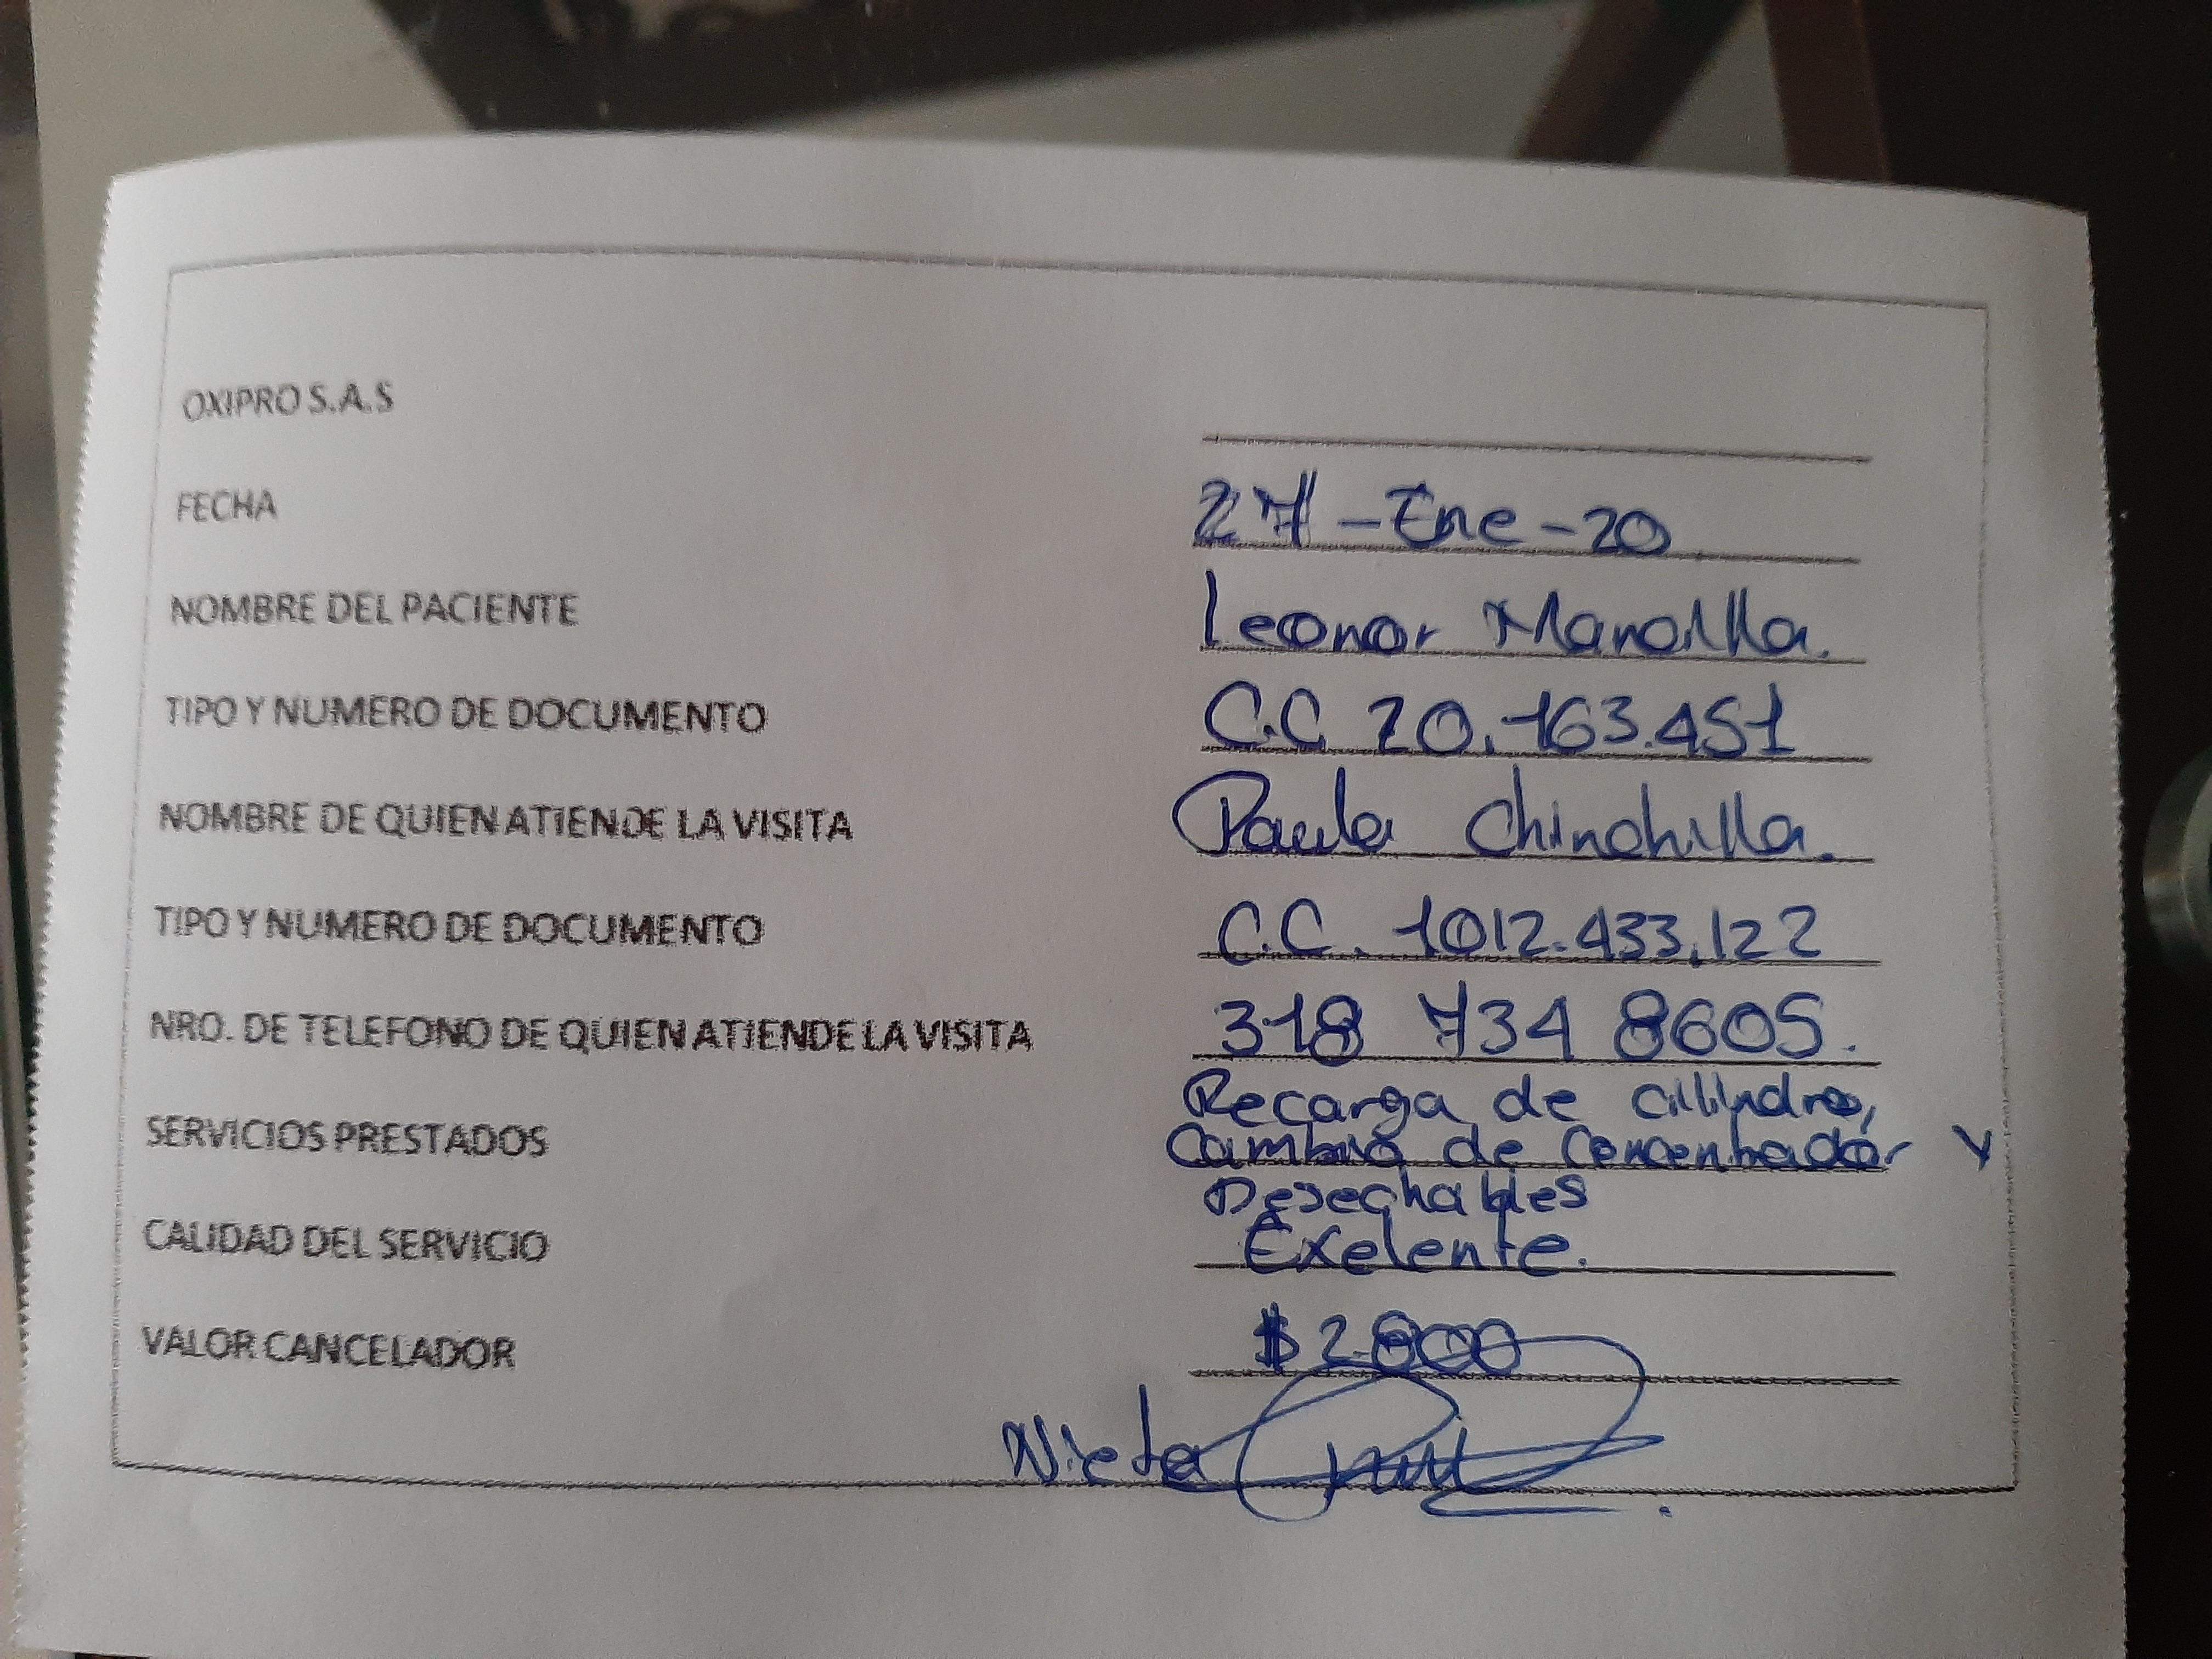 OXIPRO S.A.S
FECHA 27-Ene-20
NOMBRE DEL PACIENTE Leonor Mancilla.
TIPO Y NUMERO DE DOCUMENTO C.C. 20.163.451
NOMBRE DE QUIEN ATIENDE LA VISITA Paula Chinchilla.
TIPO Y NUMERO DE DOCUMENTO C.C. 1012.433.122
NRO. DE TELEFONO DE QUIEN ATIENDE LA VISITA 318 734 8605.
Recarga de cilindro,
SERVICIOS PRESTADOS Cambio de Concentrador y
Desechables
CALIDAD DEL SERVICIO Exelente.
VALOR CANCELADOR $2.800
Nieta